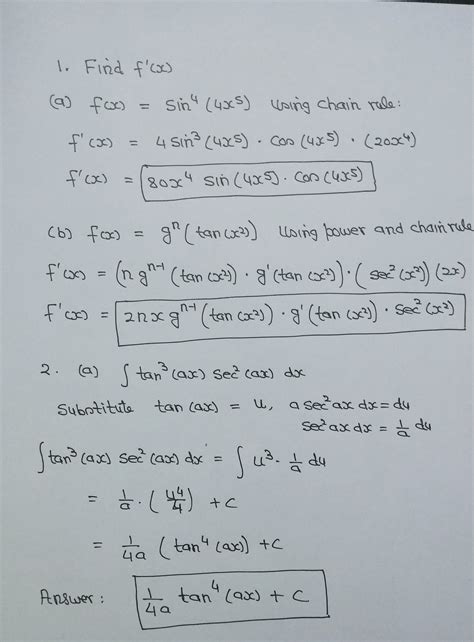 1. Find f'(x)
(a) f(x) = sin⁴(4x⁵) using chain rule:
f'(x) = 4 sin³(4x⁵) · cos(4x⁵) · (20x⁴)
f'(x) = 80x⁴ sin(4x⁵) · cos(4x⁵)
(b) f(x) = gⁿ(tan(x²)) using power and chain rule
f'(x) = (n gⁿ⁻¹(tan(x²)) · g'(tan(x²)) · (sec²(x²))(2x)
f'(x) = 2nx gⁿ⁻¹(tan(x²)) · g'(tan(x²)) · sec²(x²)
2. (a) ∫ tan³(ax) sec²(ax) dx
substitute tan(ax) = u, a sec²ax dx = du
sec²ax dx = 1/a du
∫ tan³(ax) sec²(ax) dx = ∫ u³ · 1/a du
= 1/a · (u⁴/4) + c
= 1/4a (tan⁴(ax)) + c
Answer: 1/4a tan⁴(ax) + c